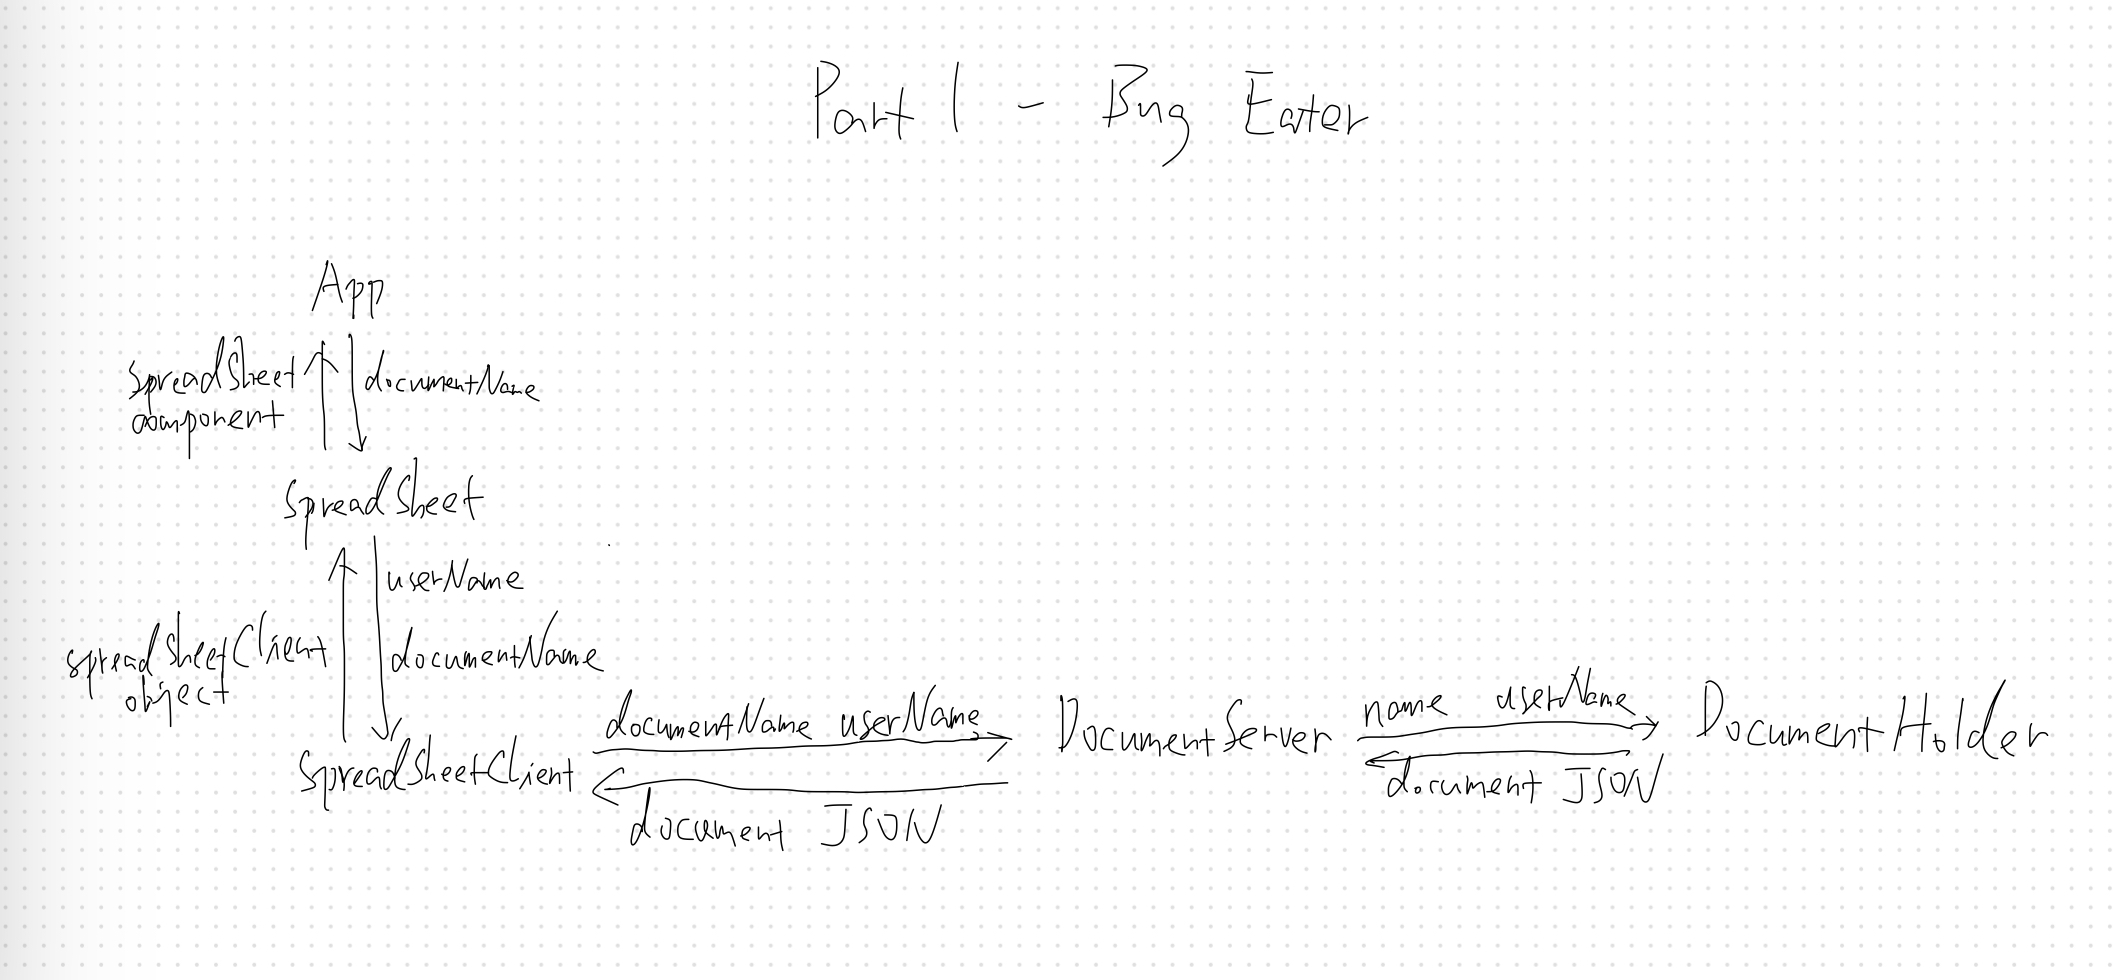 Part 1 - Bug Eater
App
SpreadSheet
component
documentName
SpreadSheet
userName
spreadSheetClient
object
documentName
SpreadSheetClient
documentName userName
document JSON
DocumentServer
name userName
document JSON
DocumentHolder